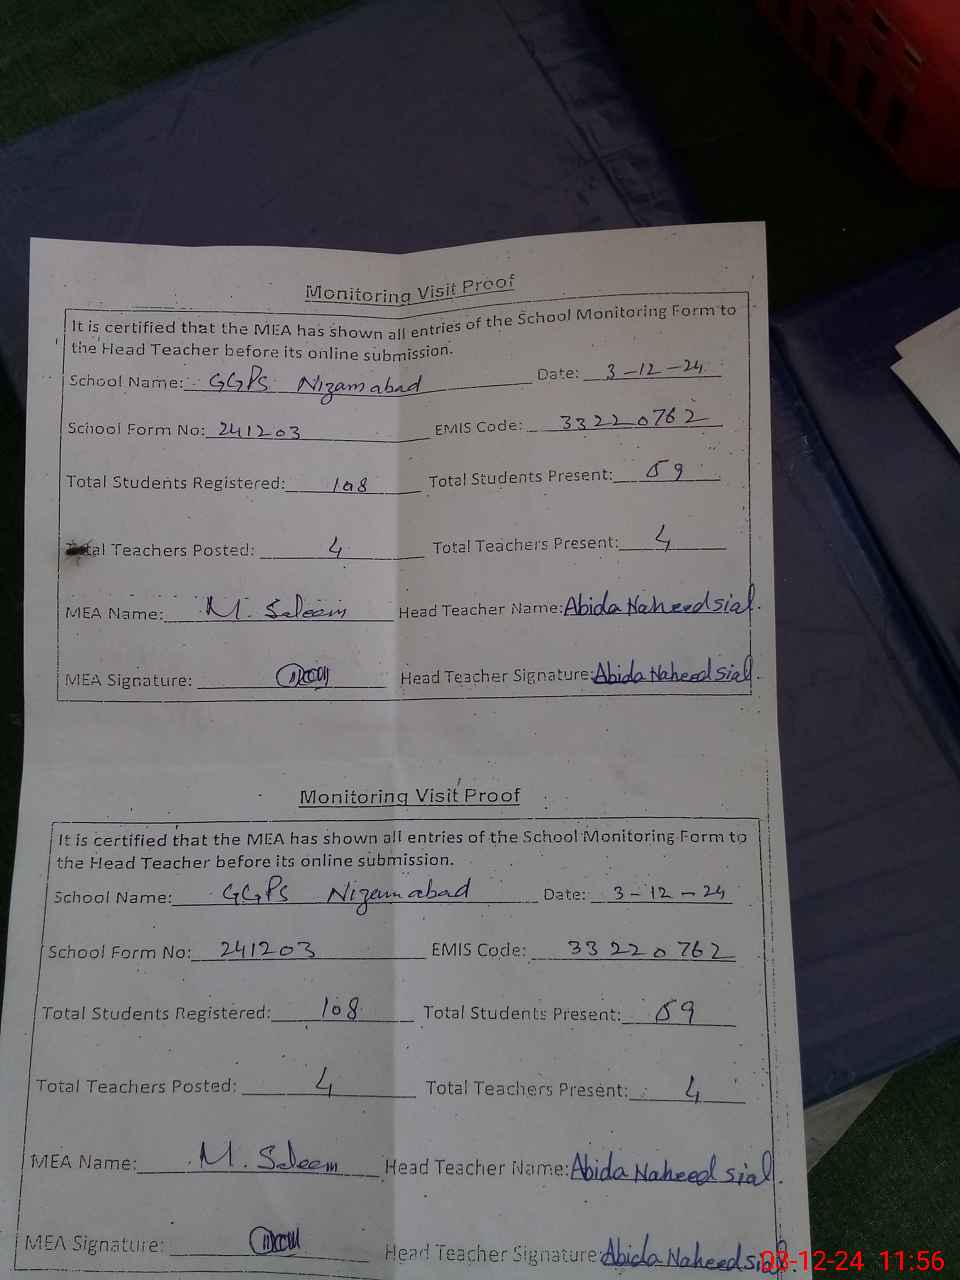 Monitoring Visit Proof
It is certified that the MEA has shown all entries of the School Monitoring Form to
the Head Teacher before its online submission.
School Name: GGPS Nizamabad Date: 3-12-24
School Form No: 241203 EMIS Code: 33220762
Total Students Registered: 108 Total Students Present: 59
Total Teachers Posted: 4 Total Teachers Present: 4
MEA Name: M. Saleem Head Teacher Name: Abida Naheed sial.
MEA Signature: Head Teacher Signature: Abida Naheed sial.
Monitoring Visit Proof
It is certified that the MEA has shown all entries of the School Monitoring Form to
the Head Teacher before its online submission.
School Name: GGPS Nizamabad Date: 3-12-24
School Form No: 241203 EMIS Code: 33220762
Total Students Registered: 108 Total Students Present: 59
Total Teachers Posted: 4 Total Teachers Present: 4
MEA Name: M. Saleem Head Teacher Name: Abida Naheed sial.
MEA Signature: Head Teacher Signature: Abida Naheed sial.
03-12-24 11:56